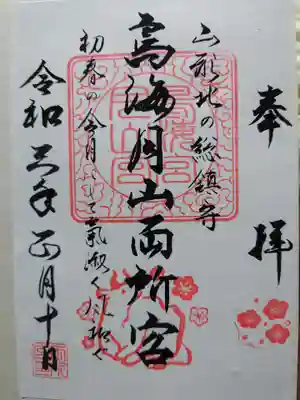 奉拝
山形北の総鎮守
鳥海月山両所宮
初春の令月にして氣淑く風和ぐ
令和三年正月十日